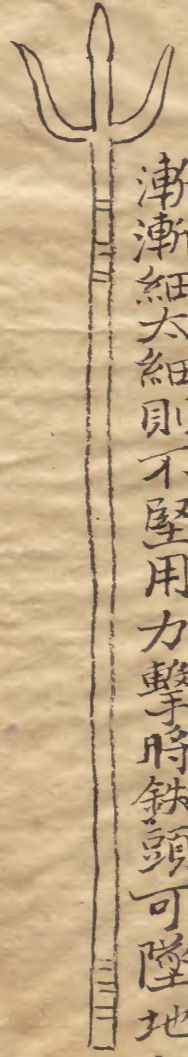 漸漸細太細則不堅用力擊將鉄頭可墜地